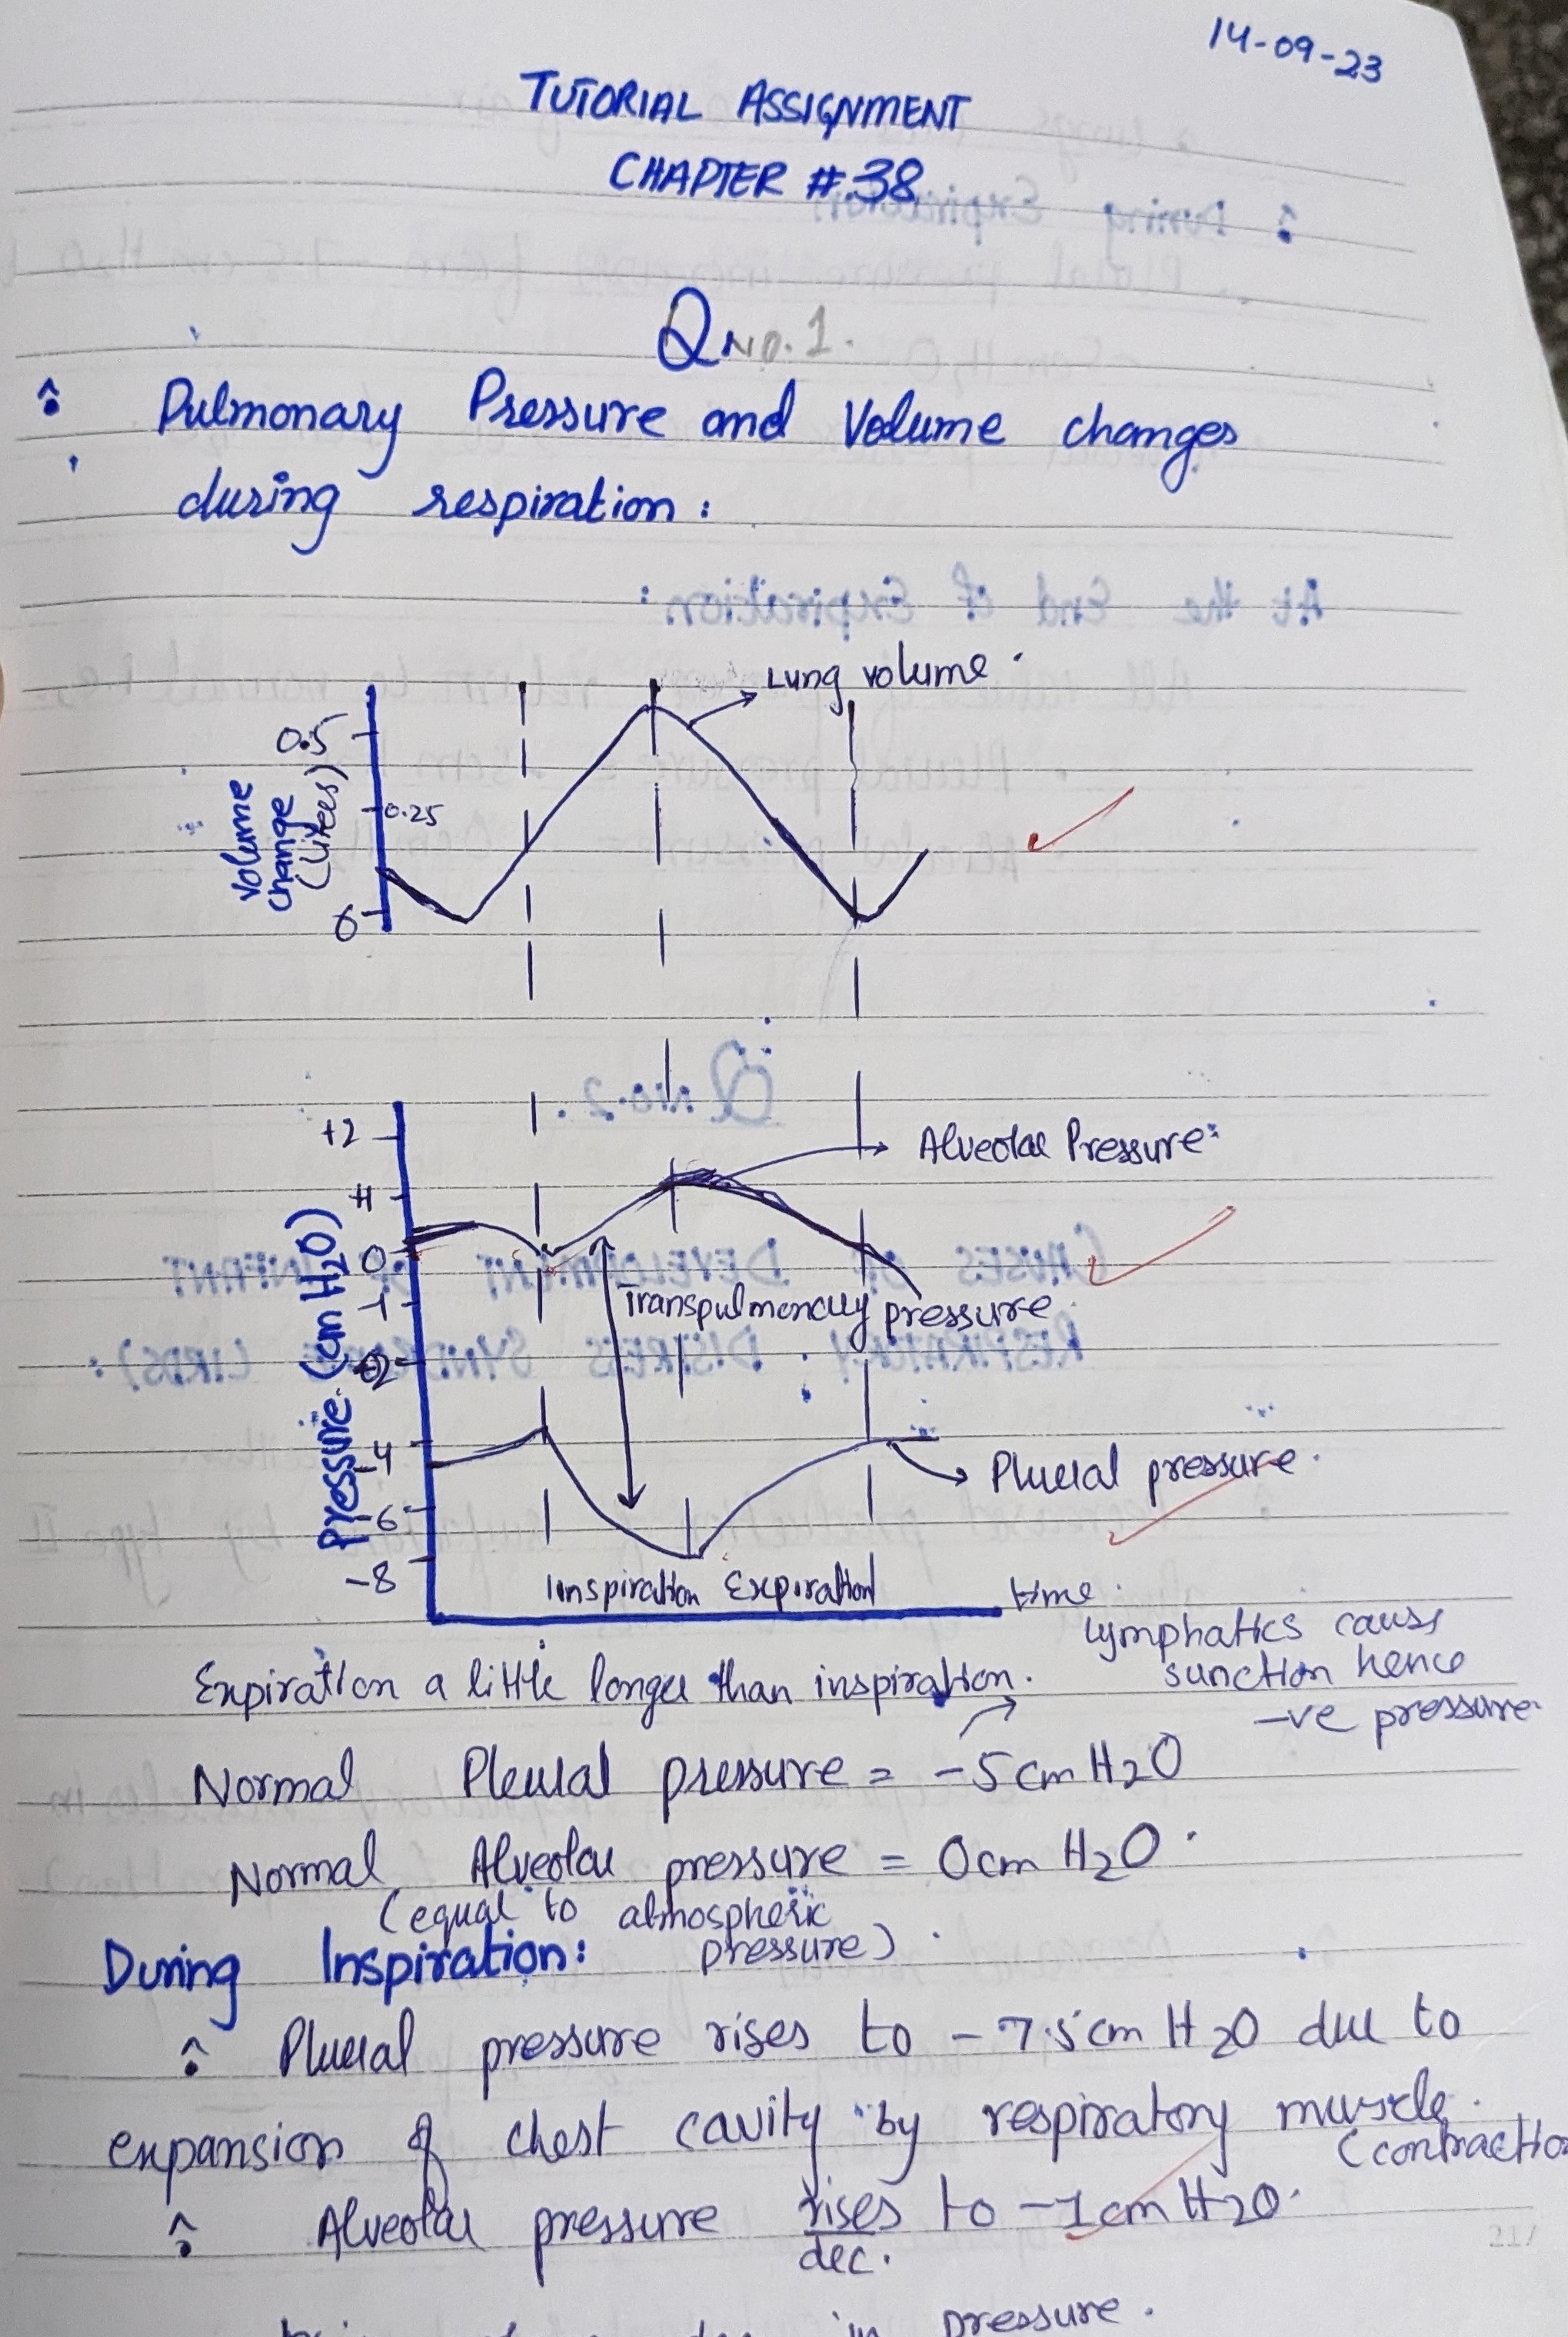 14-09-23
TUTORIAL ASSIGNMENT
CHAPTER #.38
Q No.1.
Pulmonary Pressure and Volume changes
during respiration:
Lung volume.
0.5
0.25
0
Volume
change
(Liters)
+2
+1
0
-1
-2
-4
-6
-8
Pressure (cm H2O)
Alveolar Pressure:
Transpulmonary pressure
Plueral pressure.
Iinspiration Expiration
time.
Expiration a little longer than inspiration.
lymphatics cause
sunction hence
-ve pressure.
Normal Pleural pressure = -5cm H2O
Normal Alveolar pressure = 0cm H2O.
(equal to atmospheric
pressure).
During Inspiration:
Plueral pressure rises to -7.5cm H2O due to
expansion of chest cavity by respiratory muscle.
(contraction
Alveolar pressure rises to -1cm H2O.
dec.
in pressure.
217